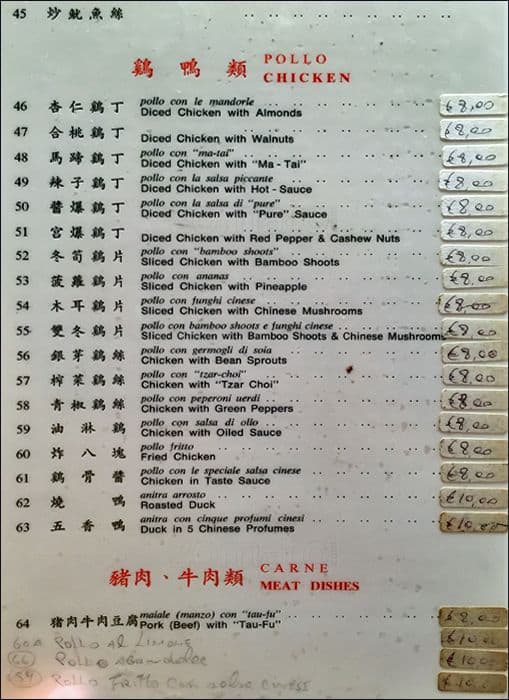 45 炒魷魚絲 .. .. .. .. .. ..
鷄鴨類 POLLO
CHICKEN
46 杏仁鷄丁 pollo con le mandorle €8,00
Diced Chicken with Almonds
47 合桃鷄丁 Diced Chicken with Walnuts €8,00
48 馬蹄鷄丁 pollo con "ma-tai" €8,00
Diced Chicken with "Ma - Tai"
49 辣子鷄丁 pollo con la salsa piccante €8,00
Diced Chicken with Hot - Sauce
50 醬爆鷄丁 pollo con la salsa di "pure" €8,00
Diced Chicken with "Pure" Sauce
51 宮爆鷄丁 Diced Chicken with Red Pepper & Cashew Nuts €8,00
52 冬筍鷄片 pollo con "bamboo shoots" €8,00
Sliced Chicken with Bamboo Shoots
53 菠蘿鷄片 pollo con ananas €8,00
Sliced Chicken with Pineapple
54 木耳鷄片 pollo con funghi cinese €8,00
Sliced Chicken with Chinese Mushrooms
55 雙冬鷄片 pollo con bamboo shoots e funghi cinese €8,00
Sliced Chicken with Bamboo Shoots & Chinese Mushrooms
56 銀芽鷄絲 pollo con germogli di soia €8,00
Chicken with Bean Sprouts
57 榨菜鷄絲 pollo con "tzar-choi" €8,00
Chicken with "Tzar Choi"
58 青椒鷄絲 pollo con peperoni uerdi €8,00
Chicken with Green Peppers
59 油淋鷄 pollo con salsa di ollo €8,00
Chicken with Oiled Sauce
60 炸八塊 pollo fritto €8,00
Fried Chicken
61 鷄骨醬 pollo con le speciale salsa cinese €8,00
Chicken in Taste Sauce
62 燒鴨 anitra arrosto €10,00
Roasted Duck
63 五香鴨 anitra con cinque profumi cinesi €10,00
Duck in 5 Chinese Profumes
豬肉、牛肉類 CARNE
MEAT DISHES
64 豬肉牛肉豆腐 maiale (manzo) con "tau-fu" €8,00
Pork (Beef) with "Tau-Fu"
60A Pollo al Limone €10,00
Pollo €10,00
59 Pollo Fritto con salsa cinesi